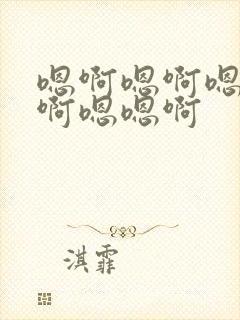 嗯啊嗯啊嗯
啊嗯嗯啊
淇霏